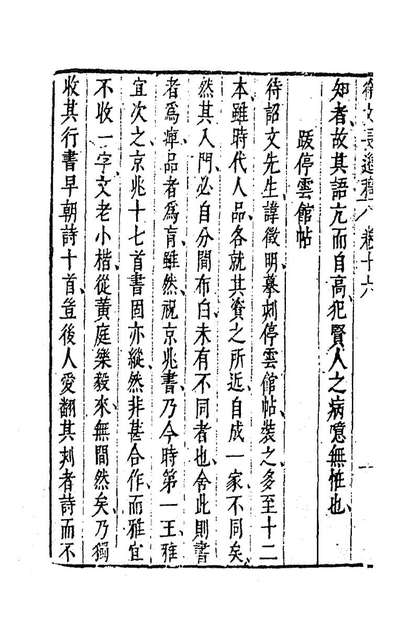 徐文長逸稿 卷十六
知者故其語亢而自高犯賢人之病噫無恠也
跋停雲館帖
待詔文先生諱徵明摹刻停雲館帖裝之多至十二
本雖時代人品各就其資之所近自成一家不同矣
然其入門必自分間布白未有不同者也舍此則書
者爲痺品者爲盲雖然祝京兆書乃今時第一王雅
宜次之京兆十七首書固亦縱然非甚合作而雅宜
不收一字文老小楷從黃庭樂毅來無間然矣乃獨
收其行書早朝詩十首豈後人愛翻其刻者詩而不